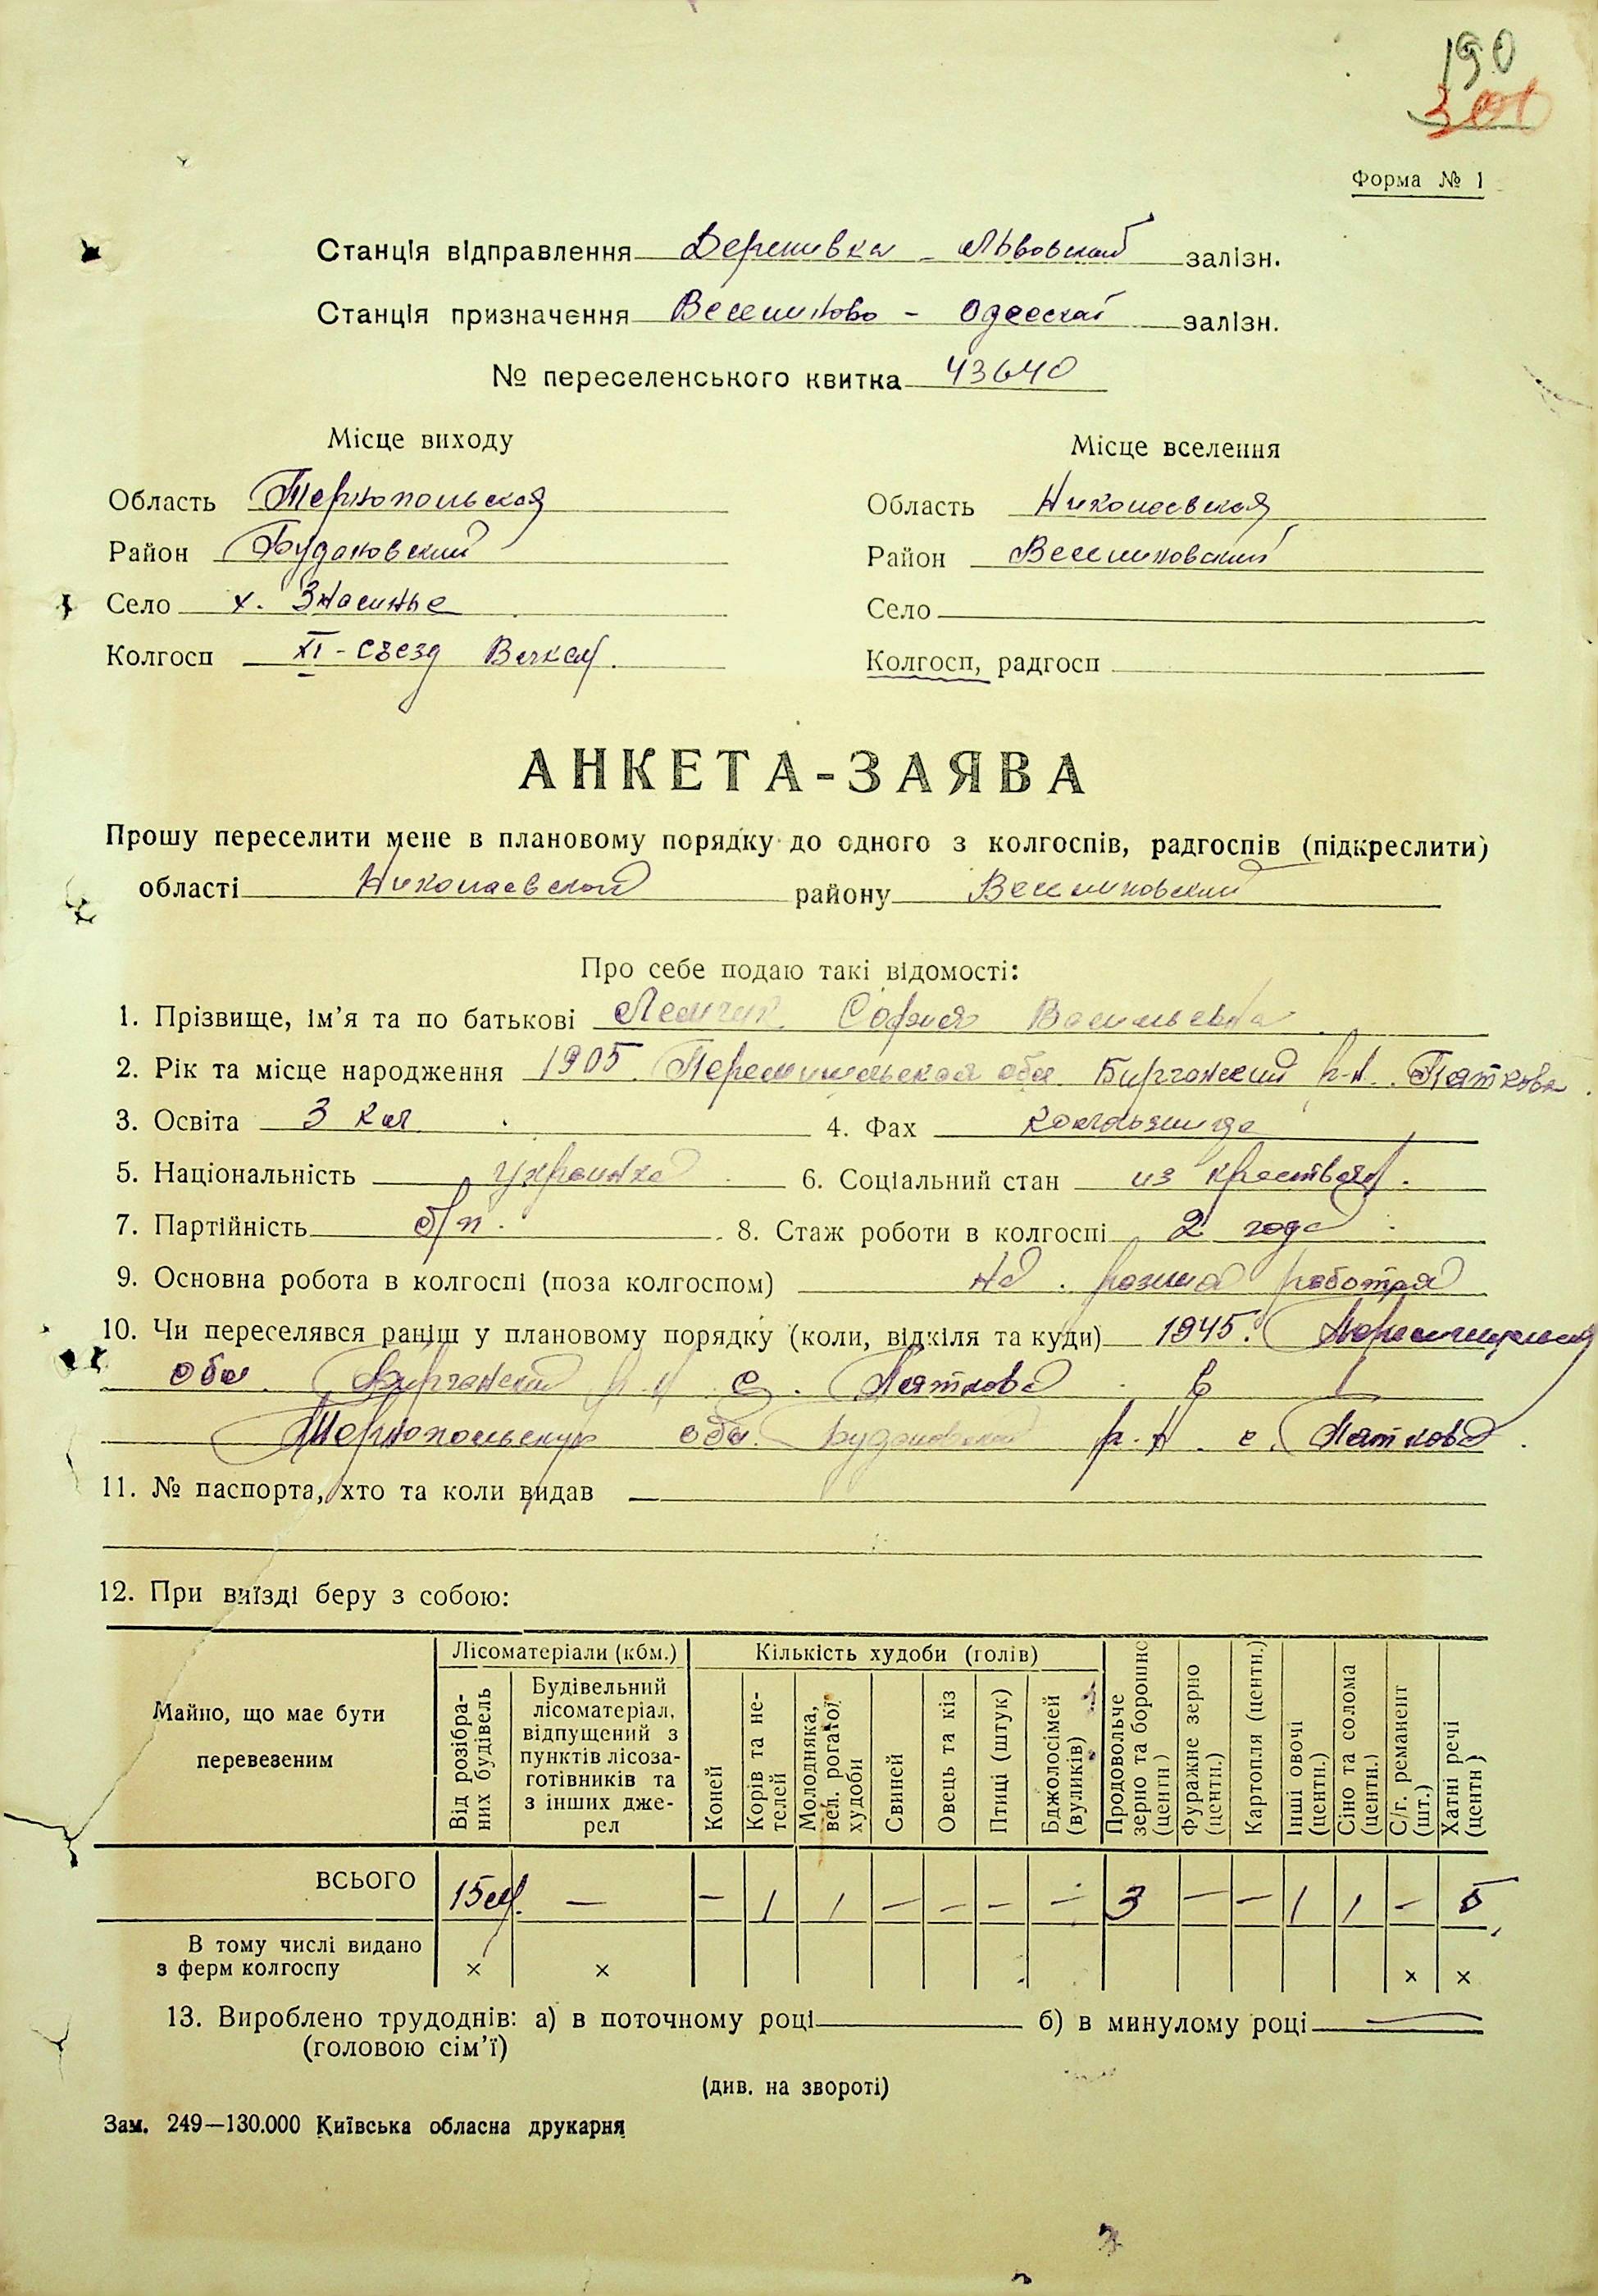 190
301
Форма № 1
Станція відправлення Деренивка - Львовской залізн.
Станція призначення Веселиново - Одесской залізн.
№ переселенського квитка 43640
Місце виходу
Місце вселення
Область Тернопольская
Область Николаевская
Район Будановский
Район Веселиновский
Село х.
Село
Колгосп XI-съезд
Колгосп, радгосп
АНКЕТА-ЗАЯВА
Прошу переселити мене в плановому порядку до одного з колгоспів, радгоспів (підкреслити)
області Николаевской району Веселиновский
Про себе подаю такі відомості:
1. Прізвище, ім'я та по батькові Лемчук София Васильевна
2. Рік та місце народження 1905 Перемишльская обл. Бирчанский р-н. Пяткова
3. Освіта 3 кл. 4. Фах колхозница
5. Національність украинка 6. Соціальний стан из крестьян.
7. Партійність б/п. 8. Стаж роботи в колгоспі 2 года
9. Основна робота в колгоспі (поза колгоспом) на разных работах
10. Чи переселявся раніш у плановому порядку (коли, відкіля та куди) 1945.
обл. Бирчанский р-н с. Пяткова в
Тернопольскую обл. Будановский р-н с. Пяткова
11. № паспорта, хто та коли видав —
12. При виїзді беру з собою:
Майно, що має бути перевезеним
Лісоматеріали (кбм.)
Кількість худоби (голів)
Від розібраних будівель
Будівельний лісоматеріал, відпущений з пунктів лісозаготівників та з інших джерел
Коней
Корів та нетелей
Молодняка, вел. рогатої худоби
Свиней
Овець та кіз
Птиці (штук)
Бджолосімей (вуликів)
Продовольче зерно та борошно (центн)
Фуражне зерно (центн.)
Картопля (центн.)
Інші овочі (центн.)
Сіно та солома (центн.)
С/г. реманент (шт.)
Хатні речі (центн)
ВСЬОГО 15 — — 1 1 — — — — 3 — — 1 1 — 5
В тому числі видано
з ферм колгоспу × × × ×
13. Вироблено трудоднів: а) в поточному році б) в минулому році —
(головою сім'ї)
(див. на звороті)
Зам. 249—130.000 Київська обласна друкарня